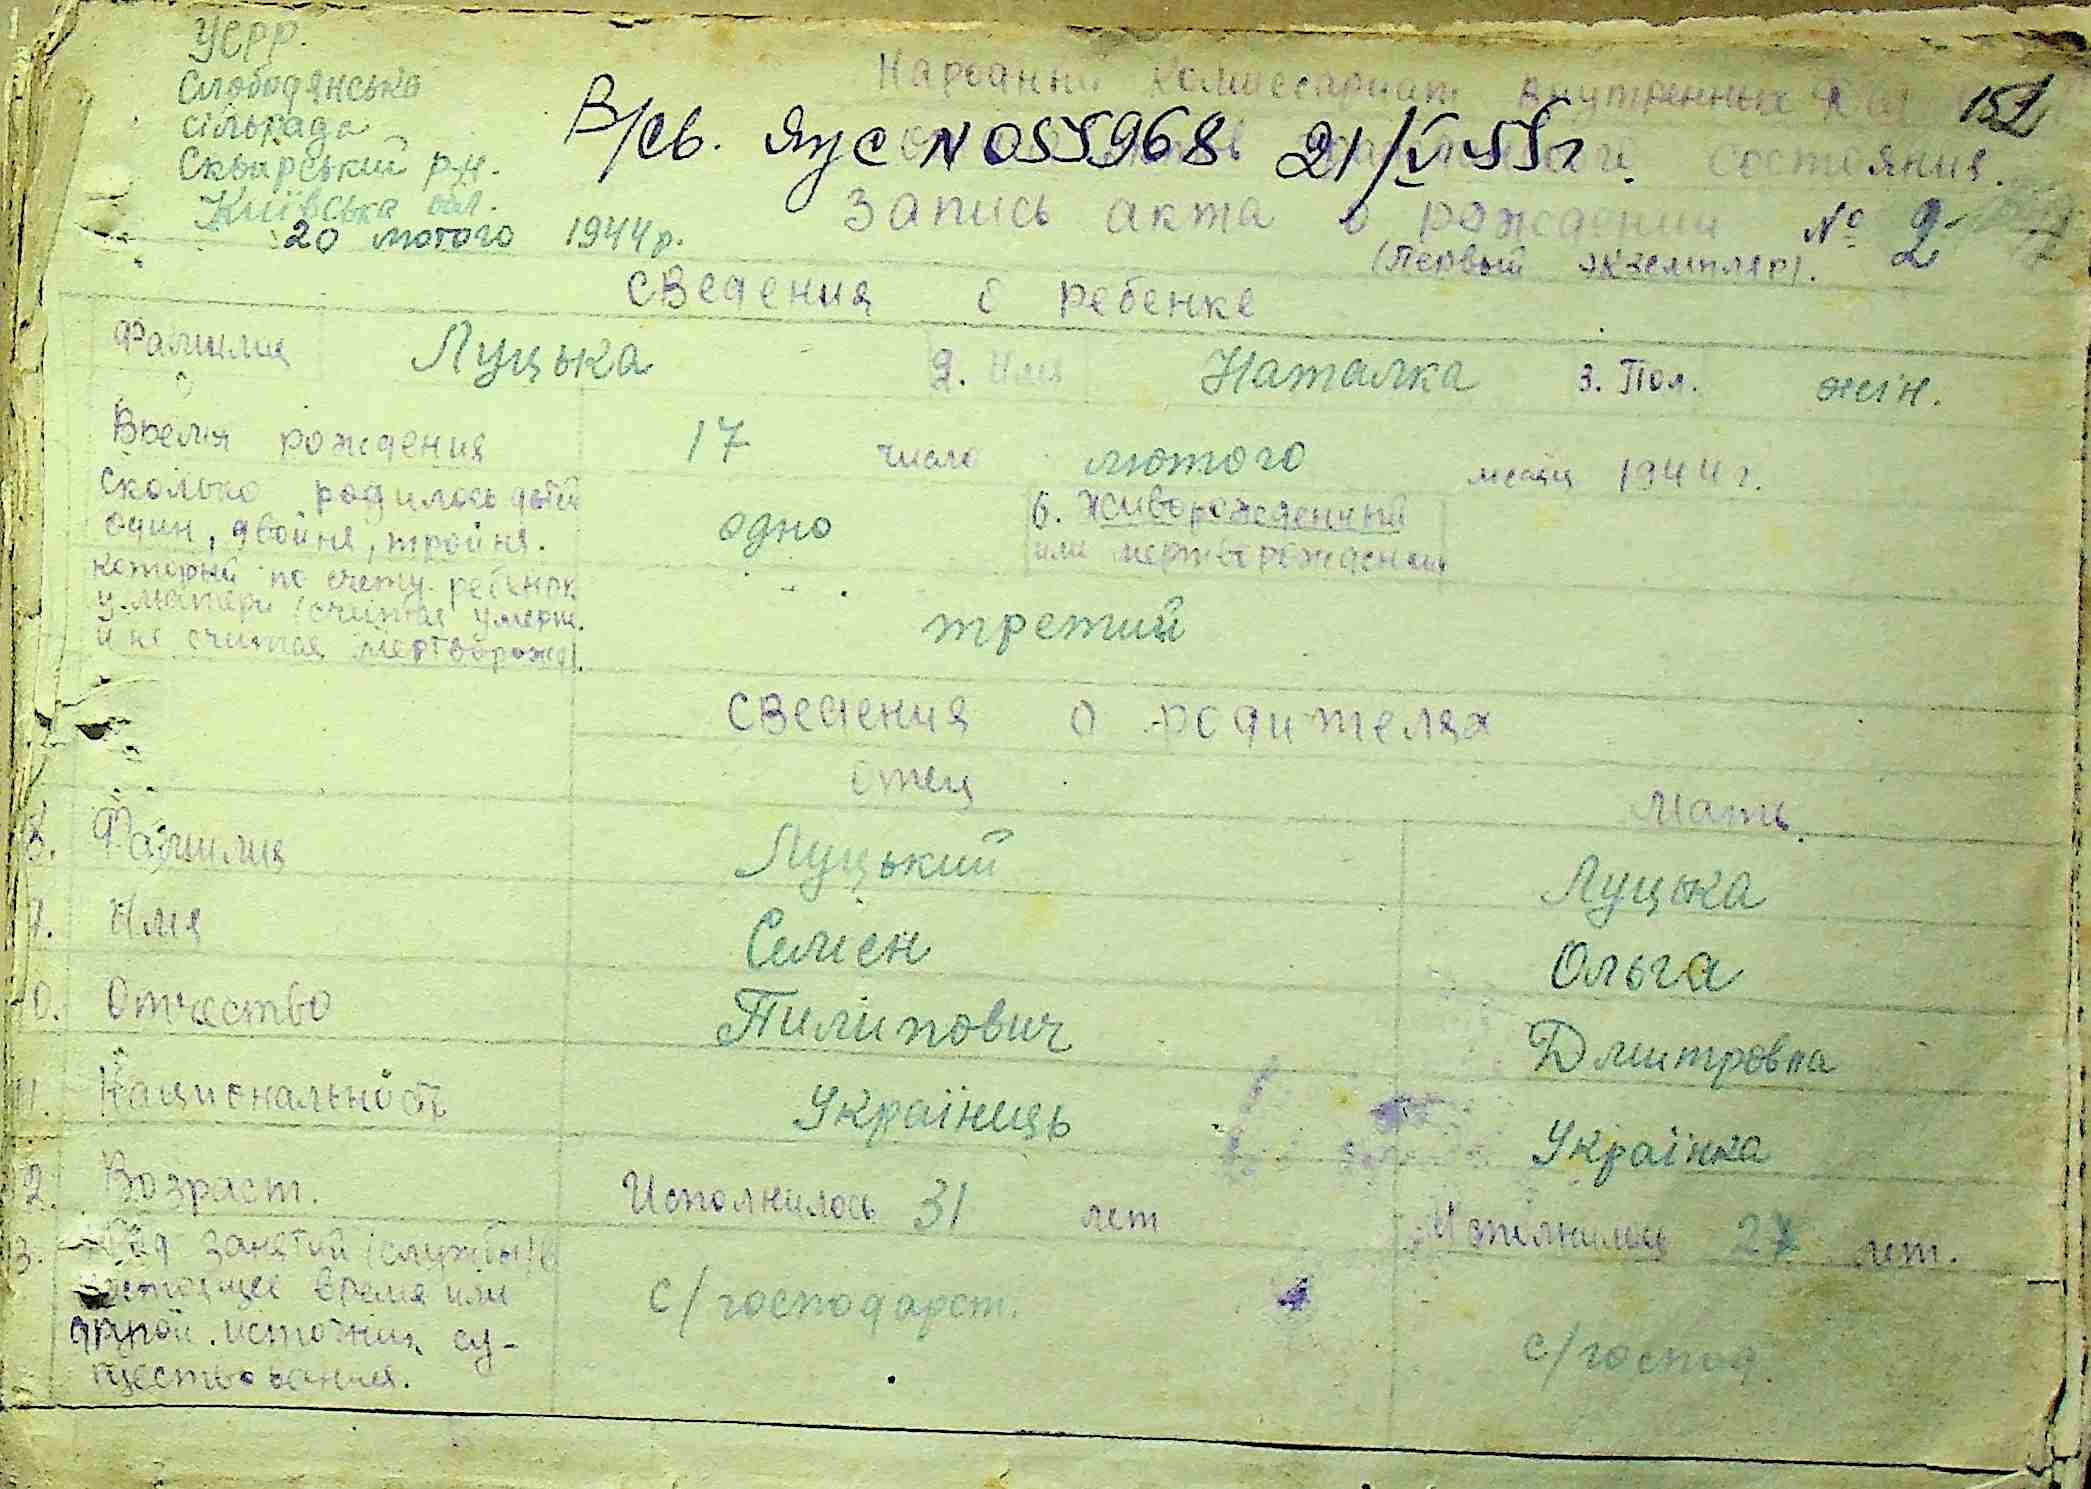 УСРР.
Слободянська
сільрада
Сквирський р-н.
Київська обл.
20 лютого 1944 р.
Народний Комиссариат Внутренных Дел
152
В/св. ЯУС N 055968 21/V 55 г.
состояния.
Запись акта о рождении № 2
(Первый экземпляр).
сведения о ребенке
Фамилия Луцька 2. Имя Наталка 3. Пол. жін.
Время рождения 17 число лютого месяц 1944 г.
Сколько родилось детей
один, двойня, тройня. одно 6. Живорожденный
или мертворожденный
который по счету ребенок
у матери (считая умерш. третий
и не считая мертворожд).
сведения о родителях
отец мать
8. Фамилия Луцький Луцка
9. Имя Семен Ольга
10. Отчество Пилипович Дмитровна
11. Национальность Україниць Українка
12. Возраст. Исполнилось 31 лет Исполнилось 27 лет.
13. Род занятий (службы) в
настоящее время или с/господарст. с/господ.
другой источник су-
ществования.